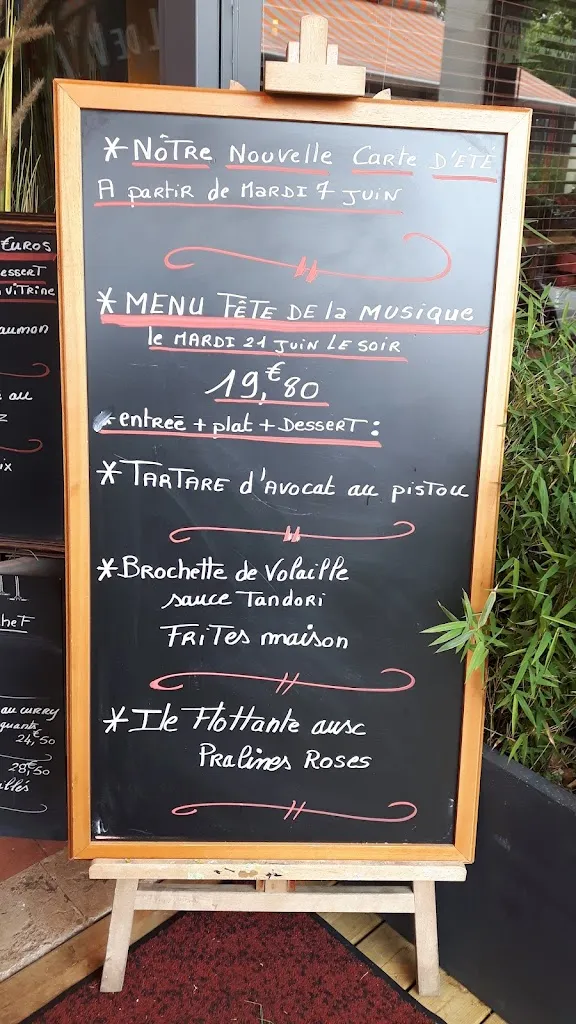 * NÔTRE NOUVELLE CARTE D'ÉTÉ
A PARTIR de MARDI 7 JUIN
* MENU FÊTE DE la MUSIQUE
le MARDI 21 JUIN LE SOIR
19,€80
*entreē + plat + DESSERT :
* TARTARE d'AVOCAT au PISTOU
* Brochette de Volaille
sauce TANDORI
FRITES maison
* Ile Flottante aux
PRALINES ROSES
EUROS
ESSERT
VITRINE
aumon
au
z
ix
heF
au CURRY
quants
24,€50
28,€50